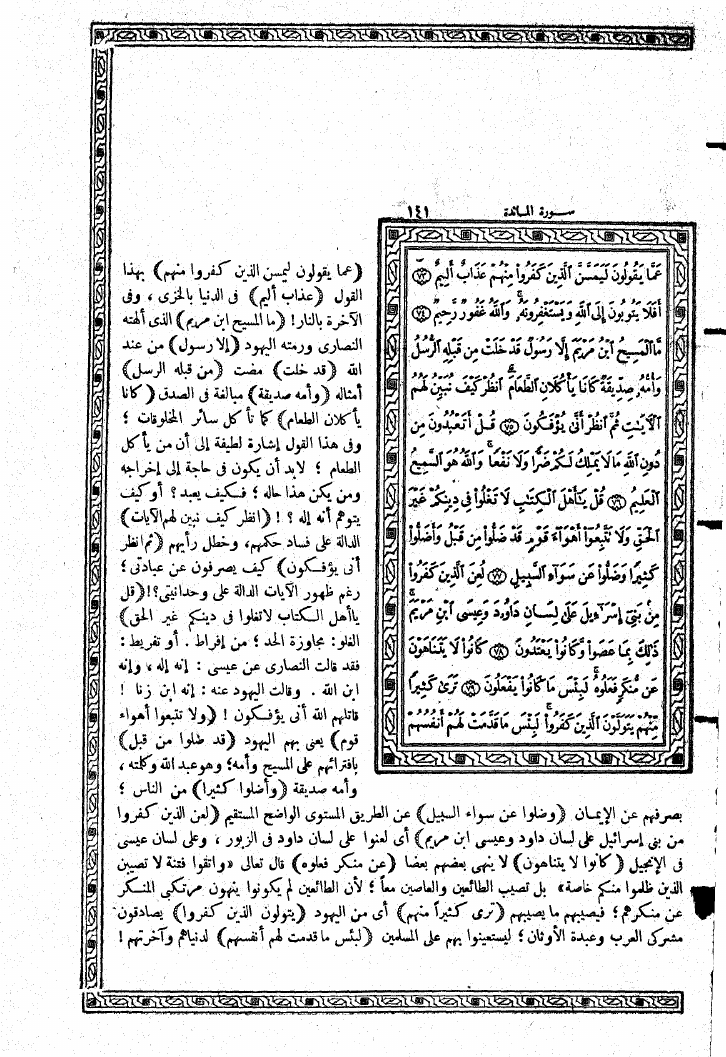 سورة المائدة ١٤١
عَمَّا يَقُولُونَ لَيَمَسَّنَّ ٱلَّذِينَ كَفَرُوا۟ مِنْهُمْ عَذَابٌ أَلِيمٌ ٧٣
أَفَلَا يَتُوبُونَ إِلَى ٱللَّهِ وَيَسْتَغْفِرُونَهُۥ وَٱللَّهُ غَفُورٌ رَّحِيمٌ ٧٤
مَّا ٱلْمَسِيحُ ٱبْنُ مَرْيَمَ إِلَّا رَسُولٌ قَدْ خَلَتْ مِن قَبْلِهِ ٱلرُّسُلُ
وَأُمُّهُۥ صِدِّيقَةٌ كَانَا يَأْكُلَانِ ٱلطَّعَامَ ٱنظُرْ كَيْفَ نُبَيِّنُ لَهُمُ
ٱلْءَايَٰتِ ثُمَّ ٱنظُرْ أَنَّىٰ يُؤْفَكُونَ ٧٥ قُلْ أَتَعْبُدُونَ مِن
دُونِ ٱللَّهِ مَا لَا يَمْلِكُ لَكُمْ ضَرًّا وَلَا نَفْعًا وَٱللَّهُ هُوَ ٱلسَّمِيعُ
ٱلْعَلِيمُ ٧٦ قُلْ يَٰٓأَهْلَ ٱلْكِتَٰبِ لَا تَغْلُوا۟ فِى دِينِكُمْ غَيْرَ
ٱلْحَقِّ وَلَا تَتَّبِعُوٓا۟ أَهْوَآءَ قَوْمٍ قَدْ ضَلُّوا۟ مِن قَبْلُ وَأَضَلُّوا۟
كَثِيرًا وَضَلُّوا۟ عَن سَوَآءِ ٱلسَّبِيلِ ٧٧ لُعِنَ ٱلَّذِينَ كَفَرُوا۟
مِنۢ بَنِىٓ إِسْرَٰٓءِيلَ عَلَىٰ لِسَانِ دَاوُۥدَ وَعِيسَى ٱبْنِ مَرْيَمَ
ذَٰلِكَ بِمَا عَصَوا۟ وَّكَانُوا۟ يَعْتَدُونَ ٧٨ كَانُوا۟ لَا يَتَنَاهَوْنَ
عَن مُّنكَرٍ فَعَلُوهُ لَبِئْسَ مَا كَانُوا۟ يَفْعَلُونَ ٧٩ تَرَىٰ كَثِيرًا
مِّنْهُمْ يَتَوَلَّوْنَ ٱلَّذِينَ كَفَرُوا۟ لَبِئْسَ مَا قَدَّمَتْ لَهُمْ أَنفُسُهُمْ
(عما يقولون ليمسن الذين كفروا منهم) بهذا
القول (عذاب أليم) فى الدنيا بالخزى ، وفى
الآخرة بالنار! (ما المسيح ابن مريم) الذى ألهته
النصارى ورمته اليهود (إلا رسول) من عند
الله (قد خلت) مضت (من قبله الرسل)
أمثاله (وأمه صديقة) مبالغة فى الصدق (كانا
يأكلان الطعام) كما تأكل سائر المخلوقات ؛
وفى هذا القول إشارة لطيفة إلى أن من يأكل
الطعام ؛ لابد أن يكون فى حاجة إلى إخراجه
ومن يكن هذا حاله ؛ فكيف يعبد ؟ أو كيف
يتوهم أنه إله ؟ ! (انظر كيف نبين لهم الآيات)
الدالة على فساد حكمهم، وخطل رأيهم (ثم انظر
أنى يؤفكون) كيف يصرفون عن عبادتى ؛
رغم ظهور الآيات الدالة على وحدانيتى؟! (قل
ياأهل الكتاب لاتغلوا فى دينكم غير الحق)
الغلو: مجاوزة الحد ؛ من إفراط . أو تفريط :
فقد قالت النصارى عن عيسى : إنه إله ، وإنه
ابن الله . وقالت اليهود عنه : إنه ابن زنا !
قاتلهم الله أنى يؤفكون ! (ولا تتبعوا أهواء
قوم) يعنى بهم اليهود (قد ضلوا من قبل)
بافترائهم على المسيح وأمه؛ وهو عبد الله وكلته ،
وأمه صديقة (وأضلوا كثيرا) من الناس ؛
بصرفهم عن الإيمان (وضلوا عن سواء السبيل) عن الطريق المستوى الواضح المستقيم (لعن الذين كفروا
من بنى إسرائيل على لسان داود وعيسى ابن مريم) أى لعنوا على لسان داود فى الزبور ، وعلى لسان عيسى
فى الإنجيل (كانوا لا يتناهون) لا ينهى بعضهم بعضا (عن منكر فعلوه) قال تعالى «واتقوا فتنة لا تصيبن
الذين ظلموا منكم خاصة» بل تصيب الطائعين والعاصين معاً ؛ لأن الطائعين لم يكونوا ينهون مرتكبى المنكر
عن منكرهم ؛ فيصيبهم ما يصيبهم (ترى كثيراً منهم) أى من اليهود (يتولون الذين كفروا) يصادقون
مشركى العرب وعبدة الأوثان ؛ ليستعينوا بهم على المسلمين (لبئس ما قدمت لهم أنفسهم) لدنياهم وآخرتهم !